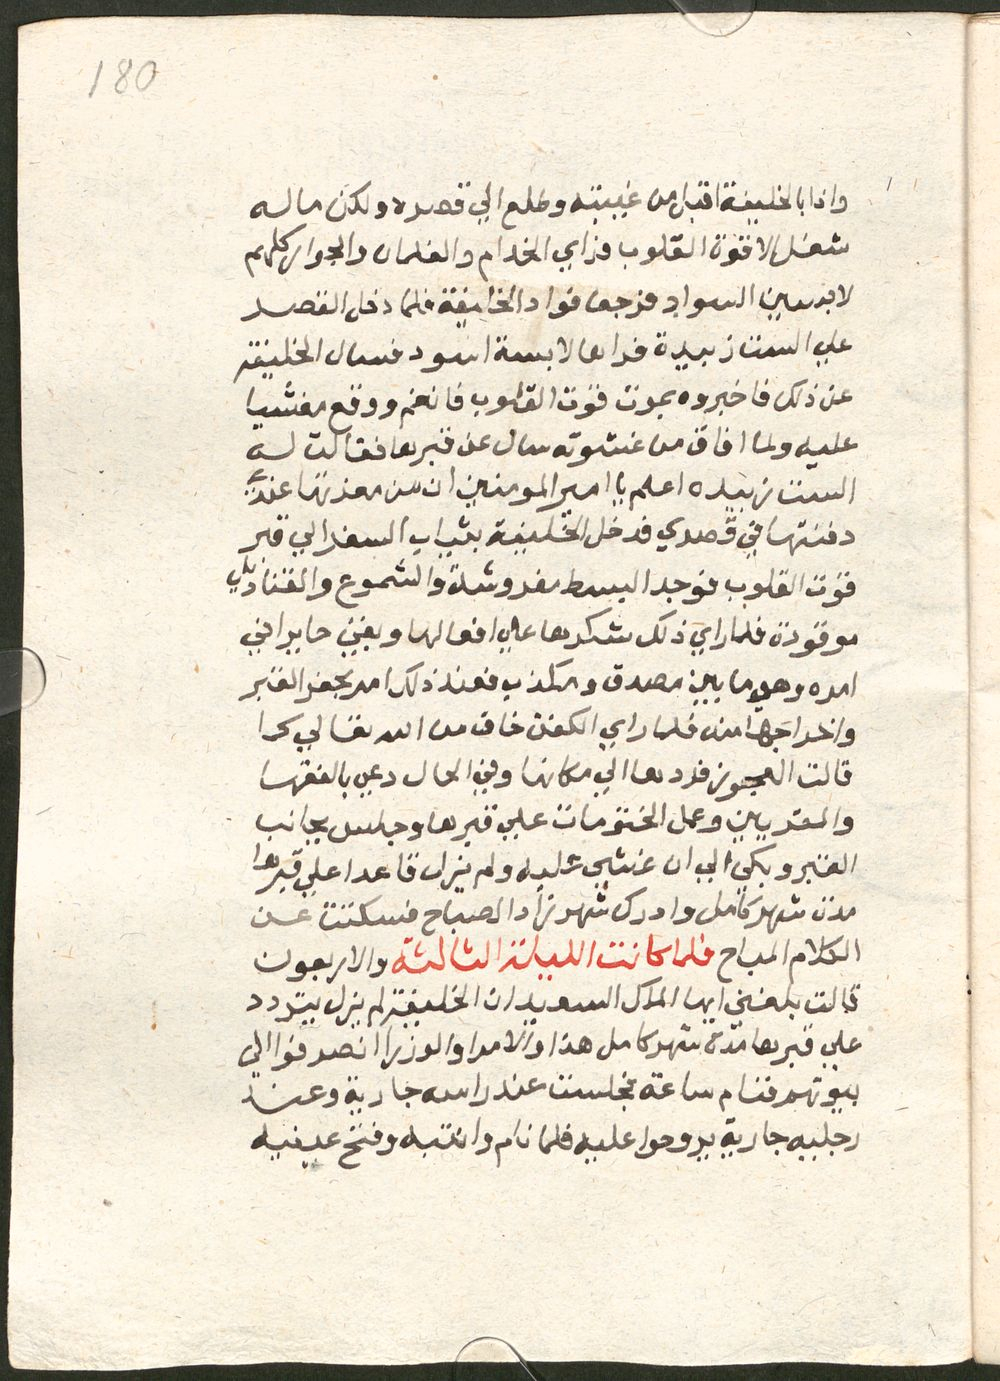 180
واذا بالخليفة اقبل من غيبته وطلع الي قصره ولكن ماله
شغل الا قوة القلوب فراي الخدام والغلمان والجوار كلهم
لابسين السواد فرجف فواد الخليفة فلما دخل القصر
علي الست زبيدة فراها لابسة اسود فسال الخليفة
عن ذلك فاخبروه بموت قوت القلوب فانغم ووقع مغشيا
عليه ولما افاق من غشوته سال عن قبرها فقالت له
الست زبيده اعلم يا امير المومنين ان من معزتها عندي
دفنتها في قصري فدخل الخليفة بثياب السفر الي قبر
قوت القلوب فوجد البسط مفروشة والشموع والقناديل
موقودة فلما راي ذلك شكرها علي افعالها وبقي حاير في
امره وهو ما بين مصدق ومكذب فعند ذلك امر بحفر القبر
واخراجها منه فلما راي الكفن خاف من الله تعالي كما
قالت العجوز فردها الي مكانها وفي الحال دعي بالفقها
والمقريين وعمل الختومات علي قبرها وجلس بجانب
القبر وبكي الي ان غشي عليه ولم يزل قاعدا علي قبرها
مدت شهر كامل وادرك شهرزاد الصباح فسكتت عن
الكلام المباح فلما كانت الليلة الثالثة والاربعون
قالت بلغني ايها الملك السعيد ان الخليفة لم يزل يتردد
علي قبرها مدة شهر كامل هذا والامرا والوزرا انصرفوا الي
بيوتهم فنام ساعة فجلست عند راسه جارية وعند
رجليه جارية يروحوا عليه فلما نام وانتبه وفتح عينيه